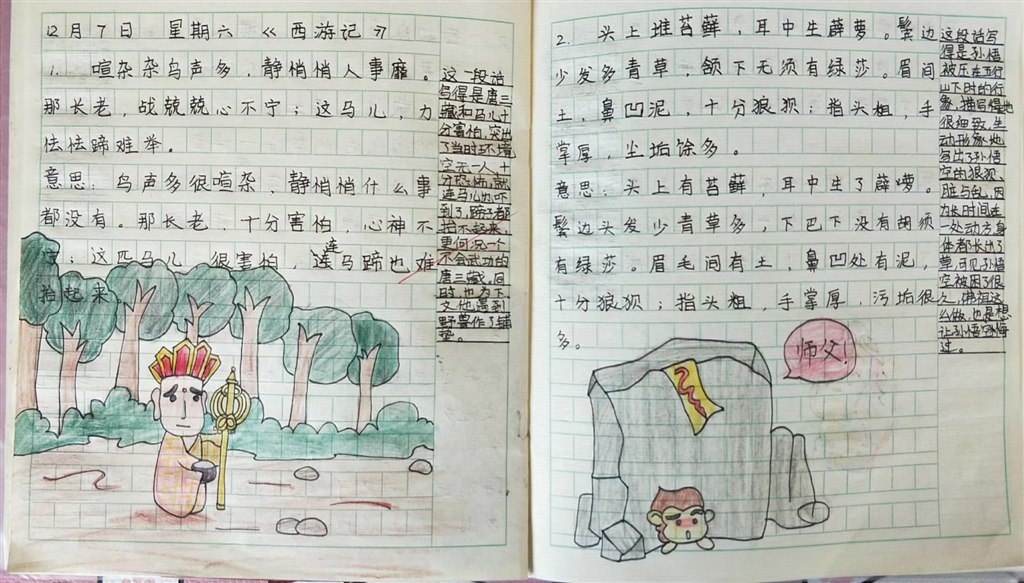 12月7日 星期六 《西游记》
1. 喧杂杂鸟声多，静悄悄人事靡。
那长老，战兢兢心不宁；这马儿，力
怯怯蹄难举。
意思：鸟声多很喧杂，静悄悄什么事
都没有。那长老，十分害怕，心神不
；这匹马儿，很害怕，连马蹄也难
抬起来
这一段话
写得是唐三
藏和马儿十
分害怕，突出
了当时环境
空无一人十
连马儿也吓
到了，蹄子都
抬不起来，
更何况一个
不会武功的
唐三藏。同
时也为下
文他遇到
野兽作了铺
垫。
2. 头上堆苔藓，耳中生薜萝。鬓边
少发多青草，颔下无须有绿莎。眉间
土，鼻凹泥，十分狼狈；指头粗，手
掌厚，尘垢馀多。
意思：头上有苔藓，耳中生了薜萝。
鬓边头发少青草多，下巴下没有胡须
有绿莎。眉毛间有土，鼻凹处有泥，
十分狼狈；指头粗，手掌厚，污垢很
多。
这段话写
得是孙悟
被压在五行
山下时的形
象，描写得
很细致，生
动形象地
写出了孙悟
空的狼狈、
脏与乱，因
为长时间在
一处动方身
体都长出了
草，可见孙悟
空被困了很
久，佛祖这
么做，也是想
让孙悟空悔
过。
师父！